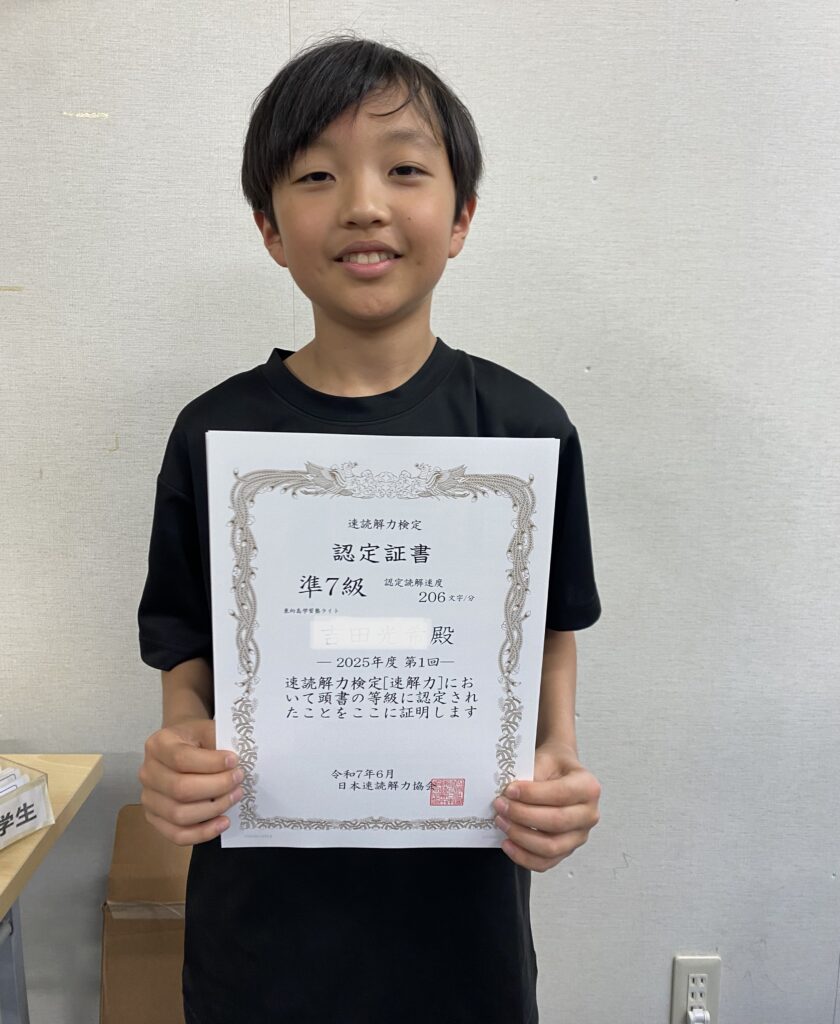 速読解力検定
認定証書
準7級 認定読解速度
206文字/分
東向島学習塾ライト
殿
― 2025年度 第1回―
速読解力検定[速解力]にお
いて頭書の等級に認定され
たことをここに証明します
令和7年6月
日本速読解力協会
学生